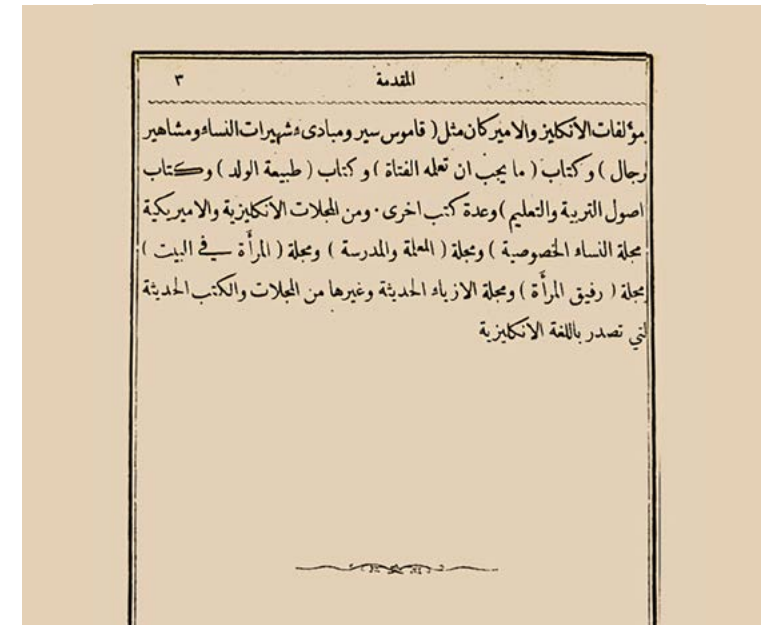 المقدمة ٣
مؤلفات الانكليز والاميركان مثل ( قاموس سير ومبادىء شهيرات النساء ومشاهير
رجال ) وكتاب ( ما يجب ان تعلمه الفتاة ) وكتاب ( طبيعة الولد ) وكتاب
اصول التربية والتعليم ) وعدة كتب اخرى · ومن المجلات الانكليزية والاميريكية
مجلة النساء الخصوصية ) ومجلة ( المعلمة والمدرسة ) ومجلة ( المرأَة في البيت )
مجلة ( رفيق المرأَة ) ومجلة الازياء الحديثة وغيرها من المجلات والكتب الحديثة
لتي تصدر باللغة الانكليزية